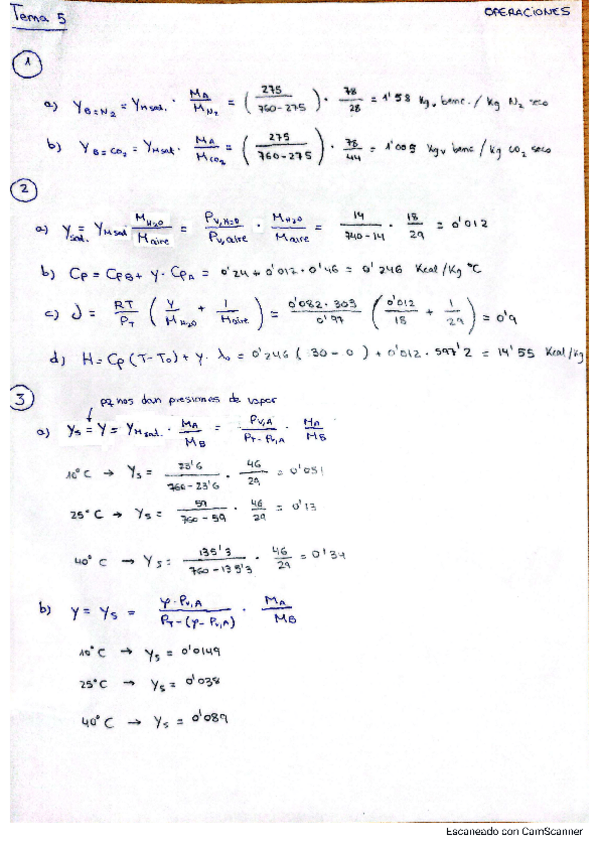 Tema 5
OPERACIONES
1
a) Y B=N₂ = Y M sat. · M_A / M_N₂ = ( 275 / 760-275 ) · 78 / 28 = 1'58 Kgv benc. / Kg N₂ seco
b) Y B=CO₂ = Y M sat. · M_A / M_CO₂ = ( 275 / 760-275 ) · 78 / 44 = 1'005 Kgv benc / Kg CO₂ seco
2
a) Y sat. = Y M sat · M_H₂O / M aire = P_V,H₂O / P_V,aire · M_H₂O / M aire = 14 / 740-14 · 18 / 29 = 0'012
b) Cp = Cp_B + Y · Cp_A = 0'24 + 0'012 · 0'46 = 0'246 Kcal / Kg °C
c) 𝒱 = RT / P_T ( Y / M_H₂O + 1 / M aire ) = 0'082 · 303 / 0'97 ( 0'012 / 18 + 1 / 29 ) = 0'9
d) H = Cp (T - T₀) + Y · λ₀ = 0'246 ( 30 - 0 ) + 0'012 · 597'2 = 14'55 Kcal / Kg
3
pq nos dan presiones de vapor
a) Ys = Y = Y M sat. · M_A / M_B = P_V,A / P_T - P_V,A · M_A / M_B
10°C → Ys = 23'6 / 760 - 23'6 · 46 / 29 = 0'051
25°C → Ys = 59 / 760 - 59 · 46 / 29 = 0'13
40°C → Ys = 135'3 / 760 - 135'3 · 46 / 29 = 0'34
b) Y = Ys = φ · P_V,A / P_T - (φ - P_V,A) · M_A / M_B
10°C → Ys = 0'0149
25°C → Ys = 0'038
40°C → Ys = 0'089
Escaneado con CamScanner